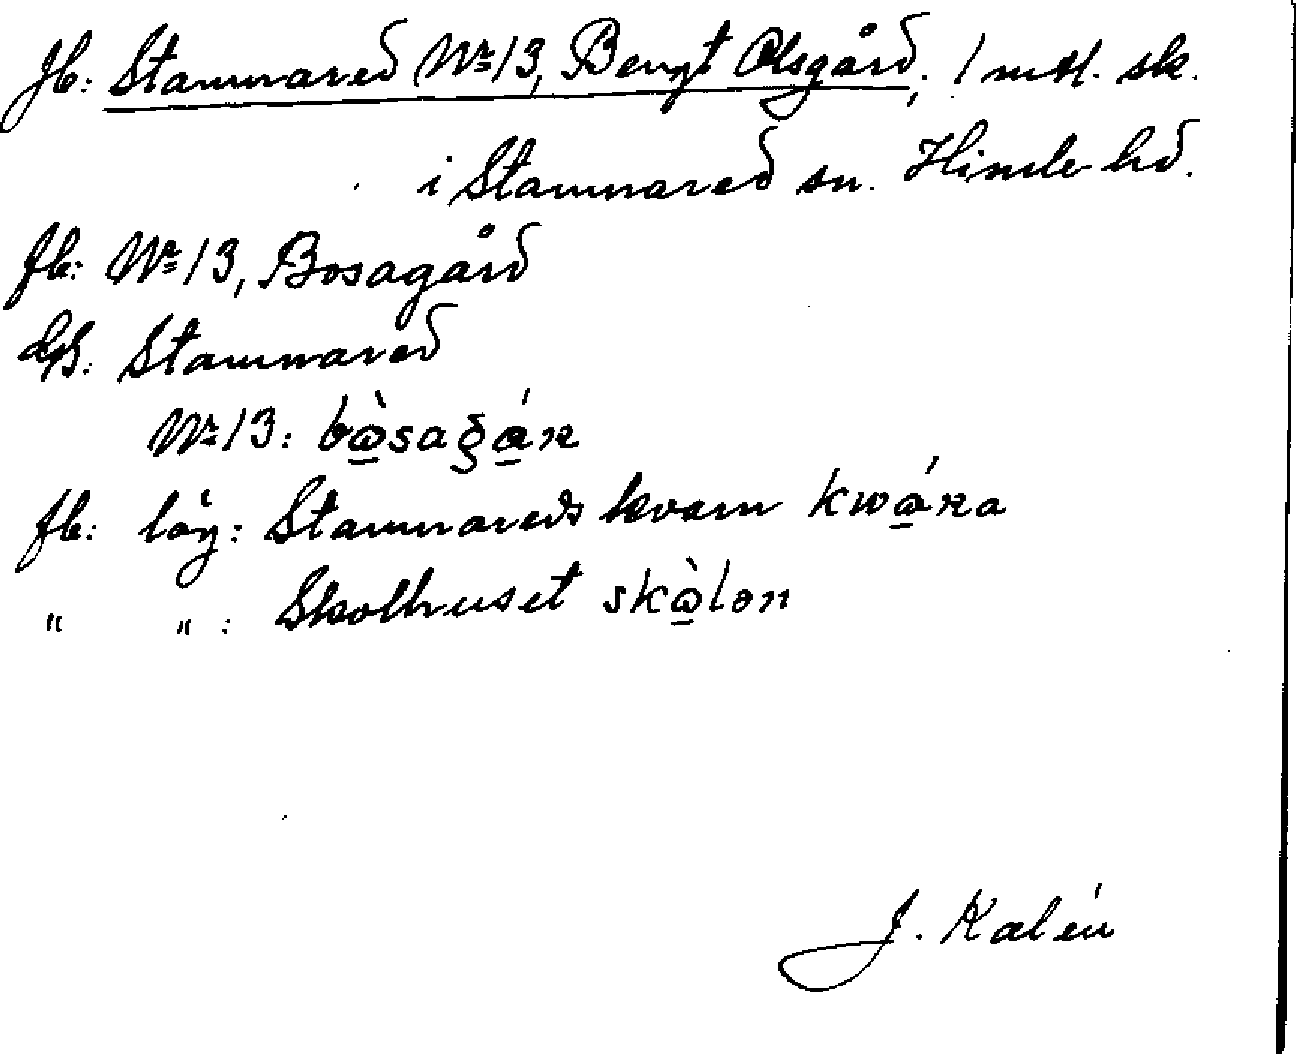 Jb: Stamnared Nr 13, Bengt Olsgård; 1 mtl. sk.
i Stamnared sn. Himle hd.
Jb: Nr 13, Bosagård
Stamnared
Nr 13:
Jb: läg: Stamnareds kvarn
" ": Skolhuset
J. Kalén